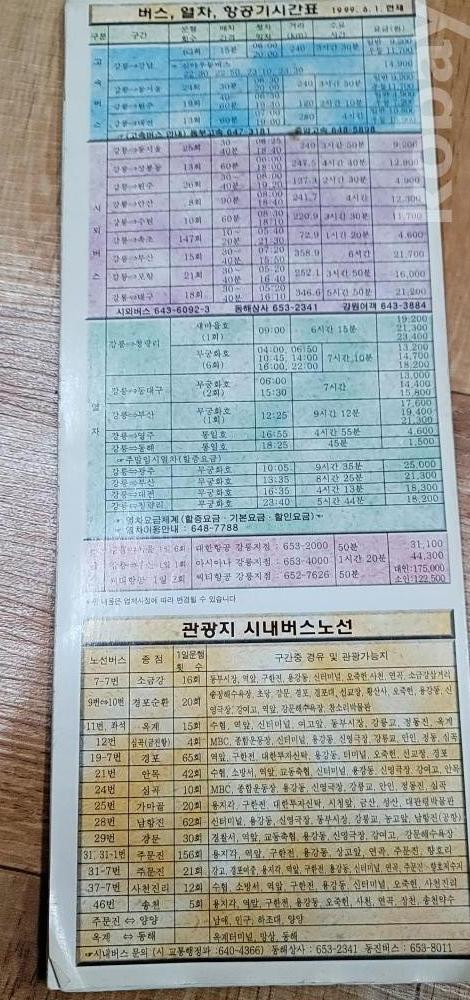 버스, 열차, 항공기시간표 1999. 6. 1. 현재
구분 구간 운행횟수 배차간격 첫차 막차 거리(km) 소요시간 요금(원)
고속버스
강릉↔강남 63회 15분 06:00 240 3시간 30분 일반 9,200
심야우등버스 14,900
22:30, 22:50, 23:10, 23:30
강릉↔동서울 24회 30분 240 3시간 50분
강릉↔원주 19회 60분 120 2시간 10분
강릉↔대전 13회 60분 280 4시간
동부고속 647-3181 중앙고속 648-5898
시외버스
강릉↔동서울 25회 30~40분 240 3시간 50분 9,200
강릉↔상봉동 13회 60분 247.5 4시간 40분 12,800
강릉↔원주 26회 127.3 2시간 30분 4,900
강릉↔안산 8회 90분 241.7 4시간 12,300
강릉↔수원 10회 60분 08:30 18:10 220.9 3시간 30분 11,700
강릉↔속초 147회 10~20분 05:40 21:30 72.9 1시간 20분 4,600
강릉↔부산 15회 30~40분 07:20 15:50 358.9 6시간 21,700
강릉↔포항 21회 30~40분 05:20 16:40 252.1 3시간 50분 16,000
강릉↔대구 18회 30~40분 05:20 16:10 346.6 5시간 50분 21,200
시외버스 643-6092-3 동해상사 653-2341 강원여객 643-3884
열차
강릉↔청량리 새마을호 (1회) 09:00 6시간 15분 19,200 21,300 23,400
무궁화호 (6회) 04:00, 06:50 10:45, 14:00 16:00, 22:00 7시간 10분 13,200 14,700 18,200
강릉↔동대구 무궁화호 (2회) 06:00 15:30 7시간 13,000 14,400 15,800
강릉↔부산 무궁화호 (1회) 12:25 9시간 12분 17,600 19,400 21,300
강릉↔영주 통일호 16:55 4시간 55분 4,600
강릉↔동해 통일호 18:25 45분 1,500
☞주말임시열차(할증요금)
강릉↔광주 무궁화호 10:05 9시간 35분 25,000
강릉↔부산 무궁화호 13:35 8시간 25분 21,300
강릉↔대전 무궁화호 16:35 4시간 13분 18,300
강릉↔청량리 무궁화호 23:40 5시간 44분 18,200
열차요금체계 (할증요금 · 기본요금 · 할인요금)
열차이용안내 : 648-7788
1일 6회 대한항공 강릉지점 : 653-2000 50분 31,100
1일 1회 아시아나 강릉지점 : 653-4000 1시간 20분 44,300
1일 2회 씨티항공 강릉지점 : 652-7626 50분 대인:175,000 소인:122,500
내용은 업체사정에 따라 변경될 수 있습니다
관광지 시내버스노선
노선버스 종 점 1일운행횟 수 구간중 경유 및 관광가능지
7-7번 소금강 16회 동부시장, 역앞, 구한전, 용강동, 신터미널, 오죽헌, 사천, 연곡, 소금강삼거리
9번⇔10번 경포순환 20회 송정해수욕장, 초당, 강문, 경포, 경포대, 선교장, 황산사, 오죽헌, 용강동, 신영극장, 강여고, 역앞, 강문해수욕장, 참소리박물관
11번, 좌석 옥계 15회 수협, 역앞, 신터미널, 여고앞, 동부시장, 강릉교, 정동진, 옥계
12번 심곡(금진항) 4회 MBC, 종합운동장, 신터미널, 용강동, 신영극장, 강릉교, 안인, 정동, 심곡
19-7번 경포 65회 역앞, 구한전, 대한투자신탁, 용강동, 터미널, 오죽헌, 선교장, 경포
21번 안목 42회 수협, 소방서, 역앞, 교동축협, 신터미널, 용강동, 신영극장, 강여고, 안목
24번 심곡 10회 MBC, 종합운동장, 용강동, 신영극장, 강릉교, 안인, 정동진, 심곡
25번 가마골 20회 용지각, 구한전, 대한투자신탁, 시청앞, 금산, 성산, 대관령박물관
28번 남항진 62회 신터미널, 용강동, 신영극장, 동부시장, 강릉교, 농고앞, 남항진(공항)
29번 강문 30회 경찰서, 역앞, 교동축협, 용강동, 신영극장, 강여고, 강문해수욕장
31, 31-1번 주문진 156회 용지각, 역앞, 구한전, 용강동, 상고앞, 연곡, 주문진, 향호리
31-7번 주문진 21회 강고, 경포여중, 용지각, 역앞, 구한전, 용강동, 신터미널, 연곡, 주문진
37-7번 사천진리 12회 수협, 소방서, 역앞, 구한전, 용강동, 신터미널, 오죽헌, 사천진리
46번 송천 5회 용지각, 역앞, 구한전, 용강동, 오죽헌, 사천, 연곡, 삼산, 송천약수
주문진 ⇔ 양양 남애, 인구, 하조대, 양양
옥계 ⇔ 동해 옥계터미널, 망상, 동해
☞시내버스 문의 (시 교통행정과 :640-4366) 동해상사 : 653-2341 동진버스 : 653-8011
kobay